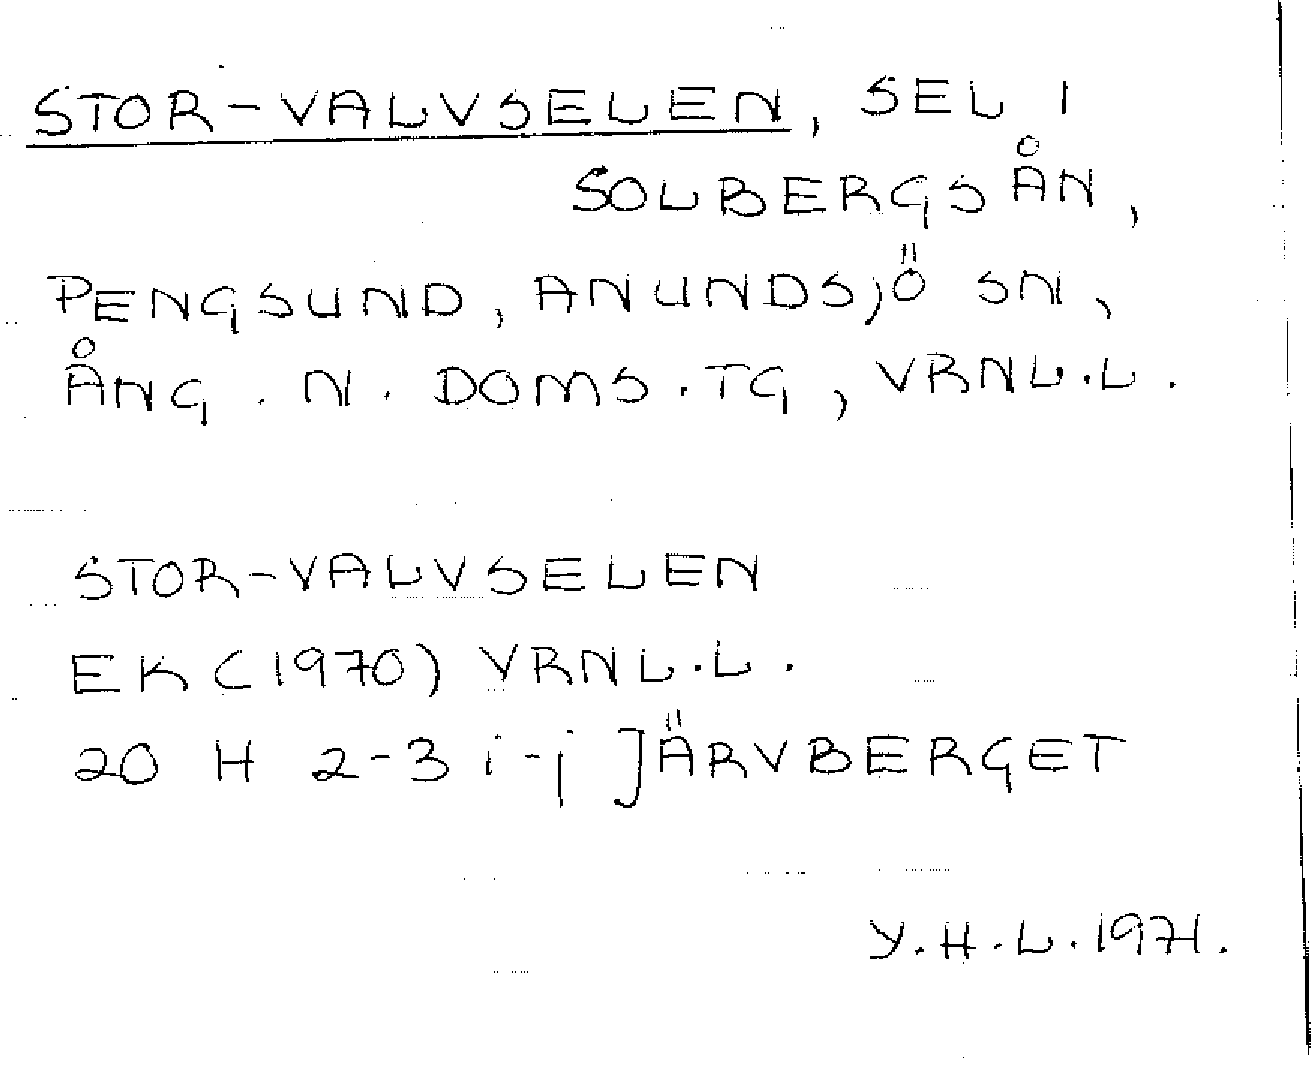 STOR-VALVSELEN, SEL I
SOLBERGSÅN,
PENGSUND, ANUNDSJÖ SN,
ÅNG. N. DOMS.TG, VRNL.L.
STOR-VALVSELEN
EK (1970) VRNL.L.
20 H 2-3 i-j JÄRVBERGET
Y.H.L. 1971.